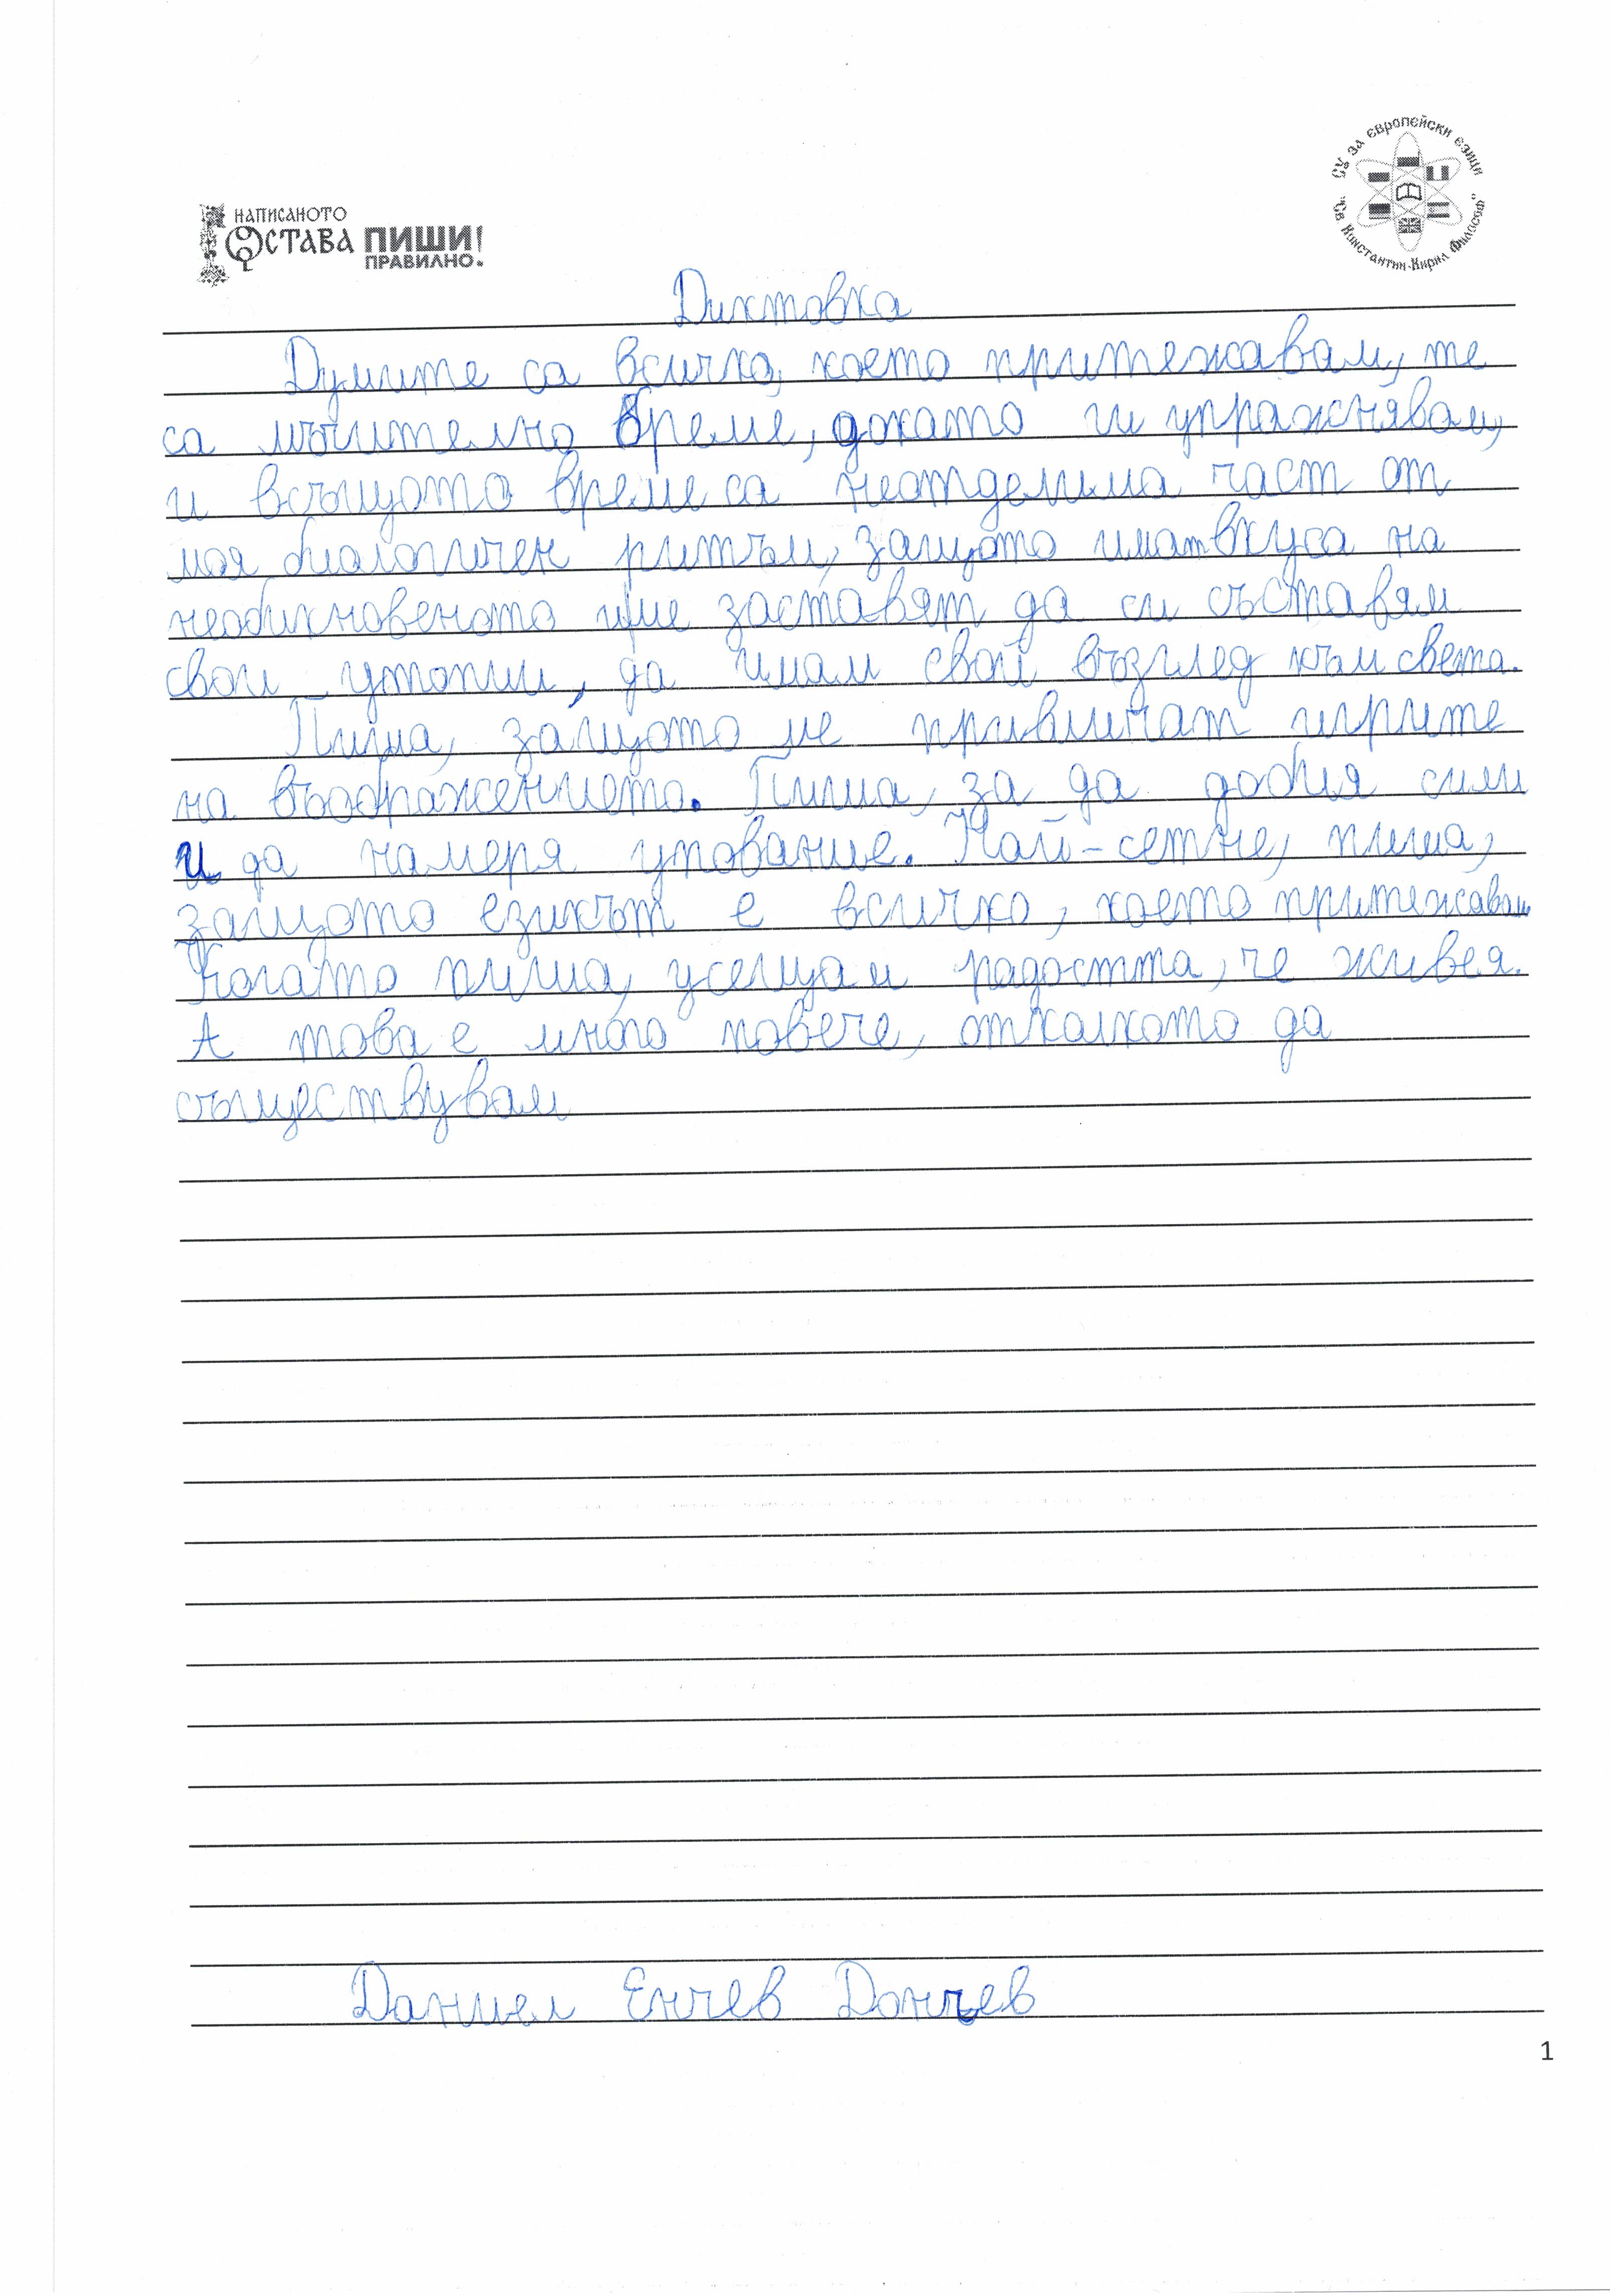 НАПИСАНОТО
ОСТАВА ПИШИ!
ПРАВИЛНО.
СУ за европейски езици
"Св. Константин-Кирил Философ"
Диктовка
Думите са всичко, което притежавам, те
са мъчително бреме, докато ги упражнявам,
и всъщото време са неотделима част от
моя биологичен ритъм, защото имат вкуса на
необикновеното и ме заставят да си съставям
свои утопии, да имам свой възглед към света.
Пиша, защото ме привличат игрите
на въображението. Пиша, за да добия сили
и да намеря упование. Най-сетне, пиша,
защото езикът е всичко, което притежавам
Когато пиша, усещам радостта, че живея.
А това е много повече, отколкото да
съществувам
Даниел Енчев Дончев
1